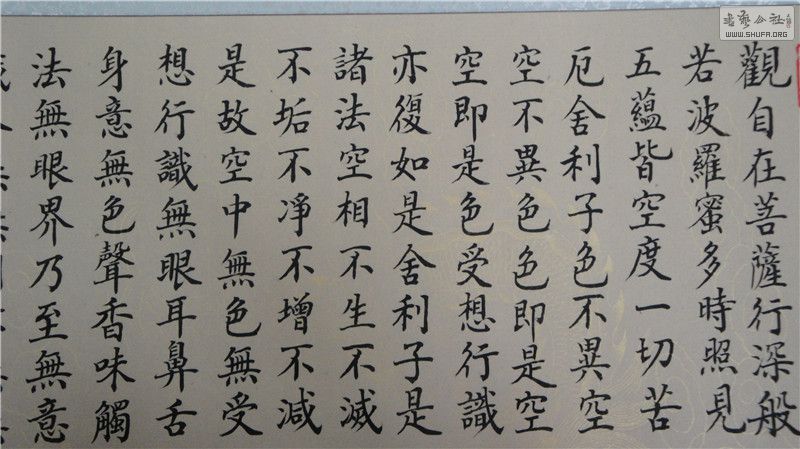 觀自在菩薩行深般
若波羅蜜多時照見
五蘊皆空度一切苦
厄舍利子色不異空
空不異色色即是空
空即是色受想行識
亦復如是舍利子是
諸法空相不生不滅
不垢不凈不增不減
是故空中無色無受
想行識無眼耳鼻舌
身意無色聲香味觸
法無眼界乃至無意
書藝公社
WWW.SHUFA.ORG